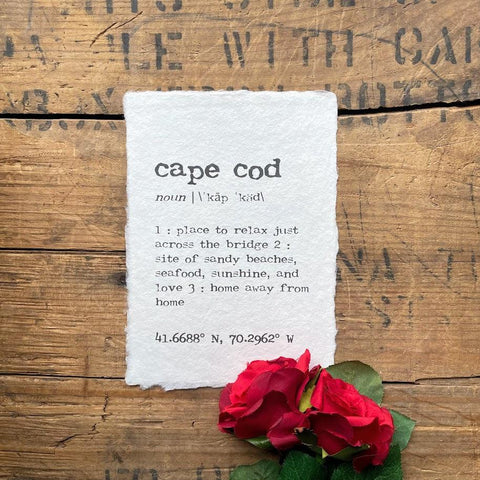 PLE WITH CAR
cape cod
noun | \ˈkāp ˈkäd\
1 : place to relax just
across the bridge 2 :
site of sandy beaches,
seafood, sunshine, and
love 3 : home away from
home
41.6688° N, 70.2962° W